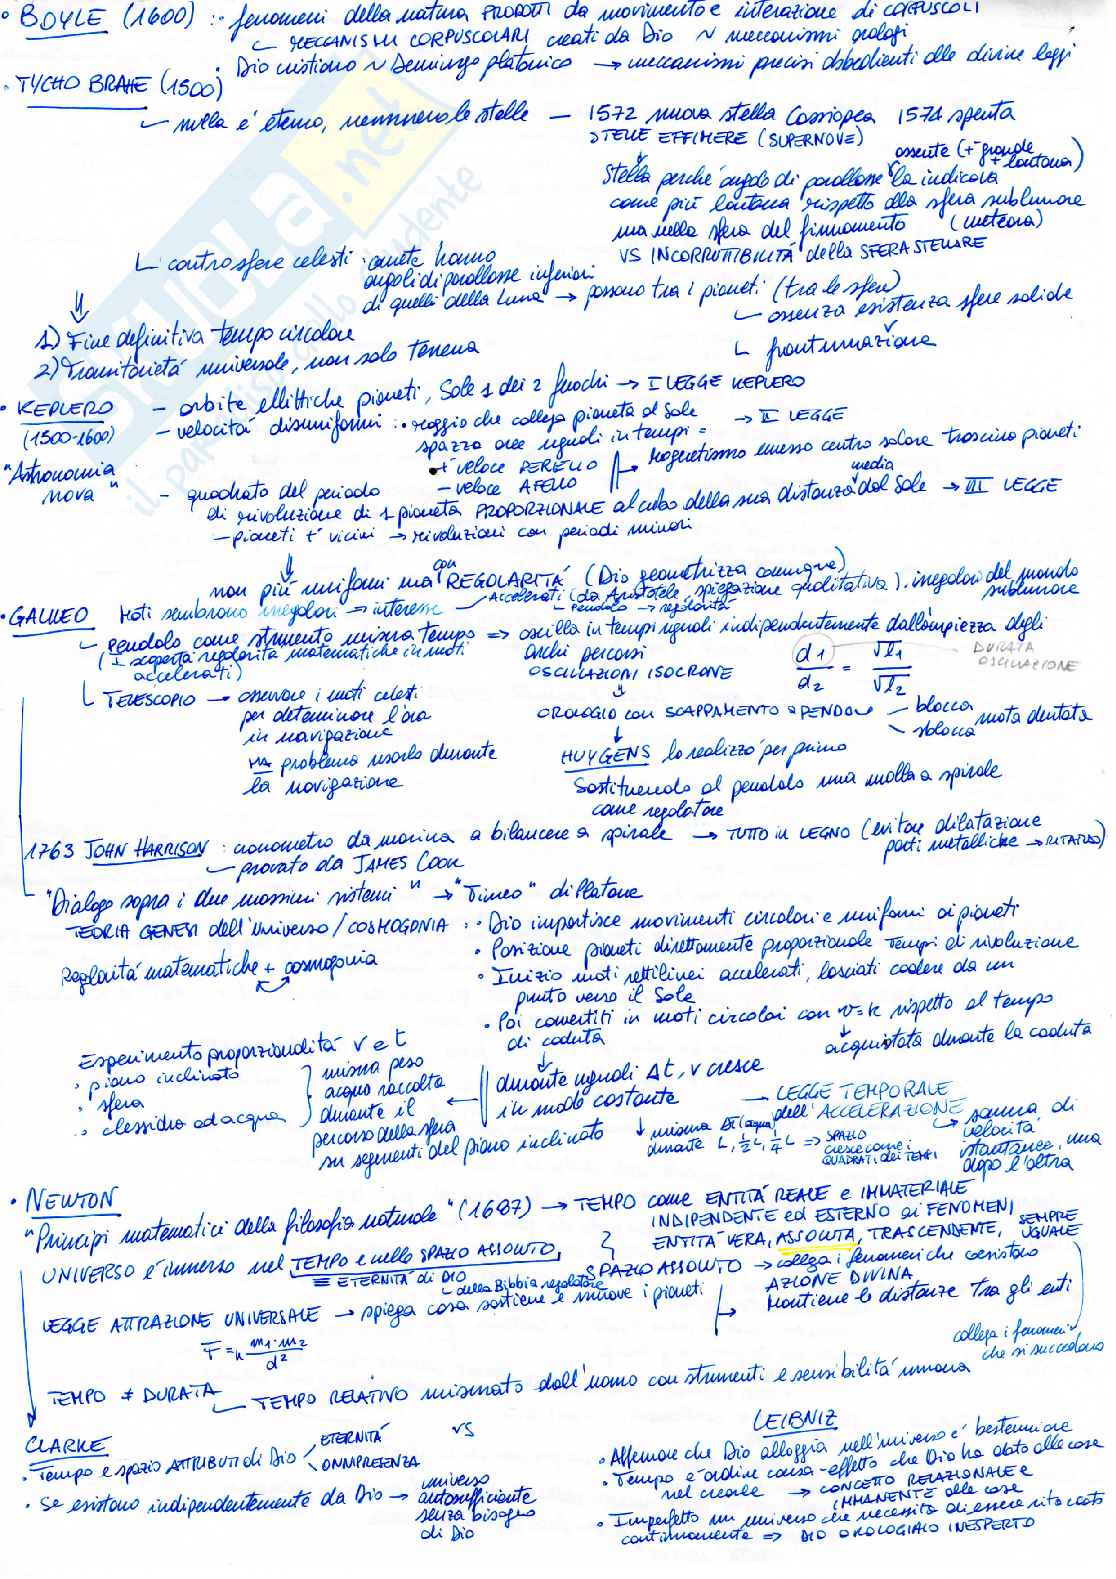 • BOYLE (1600) : • fenomeni della natura PRODOTTI da movimento e interazione di CORPUSCOLI
↳ MECCANISMI CORPUSCOLARI creati da Dio ~ meccanismi orologi
• Dio cristiano ~ Demiurgo platonico → meccanismi precisi obbedienti alle divine leggi
• TYCHO BRAHE (1500)
↳ nulla è eterno, nemmeno le stelle — 1572 nuova stella Cassiopea 1574 spenta
STELLE EFFIMERE (SUPERNOVE)
assente (+ grande + lontana)
Stella perché angolo di parallasse la indicava
come più lontana rispetto alla sfera sublunare
ma nella sfera del firmamento (meteora)
VS INCORRUTTIBILITÁ della SFERA STELLARE
↳ contro sfere celesti : comete hanno
angoli di parallasse inferiori
di quelli della Luna → passano tra i pianeti (tra le sfere)
↳ assenza esistenza sfere solide
↳ frantumazione
1) Fine definitiva tempo circolare
2) Transitorietá universale, non solo terrena
• KEPLERO — orbite ellittiche pianeti, Sole 1 dei 2 fuochi → I LEGGE KEPLERO
(1500-1600) — velocitá disuniformi : • raggio che collega pianeta al Sole → II LEGGE
spazza aree uguali in tempi =
"Astronomia nova"
+ veloce PERELIO
– veloce AFELIO
→ Magnetismo emesso centro solare trascina pianeti
– quadrato del periodo
di rivoluzione di 1 pianeta PROPORZIONALE al cubo della sua distanza media dal Sole → III LEGGE
– pianeti + vicini → rivoluzioni con periodi minori
non più uniformi ma con REGOLARITÁ (Dio geometrizza comunque)
• GALILEO Moti sembrano irregolari → interesse — Accelerati (da Aristotele, spiegazione qualitativa), irregolari del mondo sublunare
– Pendolo → regolarità
↳ pendolo come strumento misura tempo ⇒ oscilla in tempi uguali indipendentemente dall'ampiezza degli
(I scoperta regolarità matematiche in moti accelerati)
archi percorsi
OSCILLAZIONI ISOCRONE
d1/d2 = √l1/√l2
DURATA OSCILLAZIONE
↳ TELESCOPIO → osservare i moti celesti
per determinare l'ora
in navigazione
MA problema usarlo durante
la navigazione
OROLOGIO con SCAPPAMENTO a PENDOLO — blocca
sblocca ruota dentata
HUYGENS lo realizzò per primo
Sostituendo al pendolo una molla a spirale
come regolatore
1763 JOHN HARRISON : cronometro da marina a bilanciere a spirale → TUTTO in LEGNO (evitare dilatazione
parti metalliche → RITARDO)
↳ provato da JAMES COOK
"Dialogo sopra i due massimi sistemi" → "Timeo" di Platone
TEORIA GENESI dell'universo / COSMOGONIA : • Dio impartisce movimenti circolari e uniformi ai pianeti
• Posizione pianeti direttamente proporzionale tempi di rivoluzione
Regolarità matematiche + cosmogonia
• Inizio moti rettilinei accelerati, lasciati cadere da un
punto verso il Sole
• Poi convertiti in moti circolari con v=k rispetto al tempo
di caduta
acquistata durante la caduta
Esperimento proporzionalità v e t
• piano inclinato
• sfera
• clessidra ad acqua
misura peso
acqua raccolta
durante il
percorso della sfera
su segmenti del piano inclinato
durante uguali Δt, v cresce
in modo costante
→ LEGGE TEMPORALE
dell'ACCELERAZIONE
→ somma di
velocità
istantanee, una
dopo l'altra
misura Δt (acqua)
durante L, ½L, ¼L ⇒ SPAZIO
cresce come i
QUADRATI dei TEMPI
• NEWTON
"Principi matematici della filosofia naturale" (1687) → TEMPO come ENTITÁ REALE e IMMATERIALE
INDIPENDENTE ed ESTERNO ai FENOMENI
ENTITÁ VERA, ASSOLUTA, TRASCENDENTE, SEMPRE UGUALE
UNIVERSO è immerso nel TEMPO e nello SPAZIO ASSOLUTO,
≡ ETERNITÁ di DIO
↳ della Bibbia regolatore
SPAZIO ASSOLUTO → collega i fenomeni che coesistono
AZIONE DIVINA
Mantiene le distanze tra gli enti
LEGGE ATTRAZIONE UNIVERSALE → spiega cosa sostiene e muove i pianeti
F = k m1·m2/d²
collega i fenomeni
che si succedono
TEMPO ≠ DURATA
↳ TEMPO RELATIVO misurato dall'uomo con strumenti e sensibilitá umana
CLARKE VS LEIBNIZ
• Tempo e spazio ATTRIBUTI di Dio < ETERNITÁ
ONNIPRESENZA
• Se esistono indipendentemente da Dio → universo
autosufficiente
senza bisogno
di Dio
• Affermare che Dio alloggia nell'universo é bestemmiare
• Tempo è ordine causa-effetto che Dio ha dato alle cose
nel crearle → CONCETTO RELAZIONALE e
IMMANENTE alle cose
• Imperfetto un universo che necessita di essere ritoccato
continuamente ⇒ DIO OROLOGIAIO INESPERTO
skuola.net
il paradiso dello studente